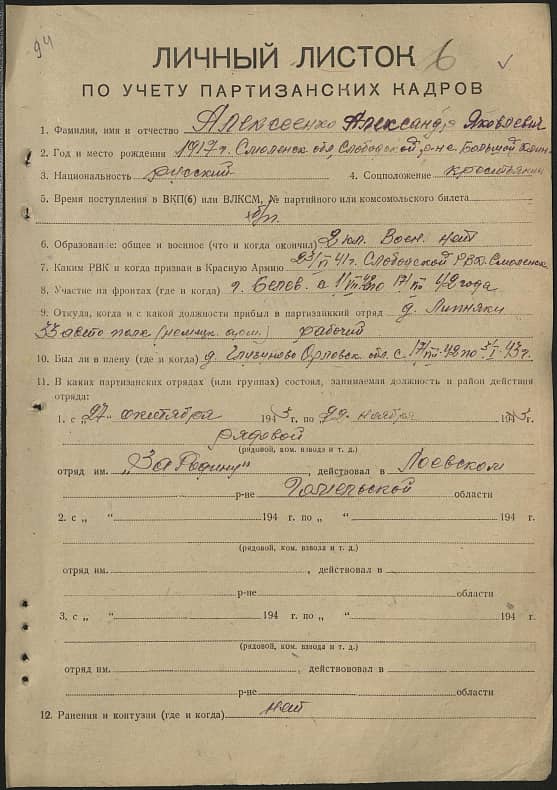 94
6
ЛИЧНЫЙ ЛИСТОК
ПО УЧЕТУ ПАРТИЗАНСКИХ КАДРОВ
1. Фамилия, имя и отчество Алексеенко Александр Яковлевич
2. Год и место рождения 1917 г. Смоленск. обл, Слободской, с. Большой
3. Национальность русский 4. Соцположение крестьянин
5. Время поступления в ВКП(б) или ВЛКСМ, № партийного или комсомольского билета
б/п.
6. Образование: общее и военное (что и когда окончил) 2 кл. Воен. нет
7. Каким РВК и когда призван в Красную Армию 23/VI 41 г. Слободской РВК. Смоленск
8. Участие на фронтах (где и когда) г. Белев. с 1/III 42 по 17/III 42 года
9. Откуда, когда и с какой должности прибыл в партизанкий отряд д. Липняки
33 авто полк (немецк. арм.) рабочий
10. Был ли в плену (где и когда) д. Орловск. обл. с 17/III-42 по 43 г.
11. В каких партизанских отрядах (или группах) состоял, занимаемая должность и район действия
отряда:
1. с „27" октября 1943 г. по „29" ноября 1943 г.
рядовой
(рядовой, ком. взвода и т. д.)
отряд им. „За Родину", действовал в Лоевском
р-не Гомельской области
2. с „ " 194 г. по „ " 194 г.
(рядовой, ком. взвода и т. д.)
отряд им. , действовал в
р-не области
3. с „ " 194 г. по „ " 194 г.
(рядовой, ком. взвода и т. д.)
отряд им. , действововал в
р-не области
12. Ранения и контузии (где и когда) нет